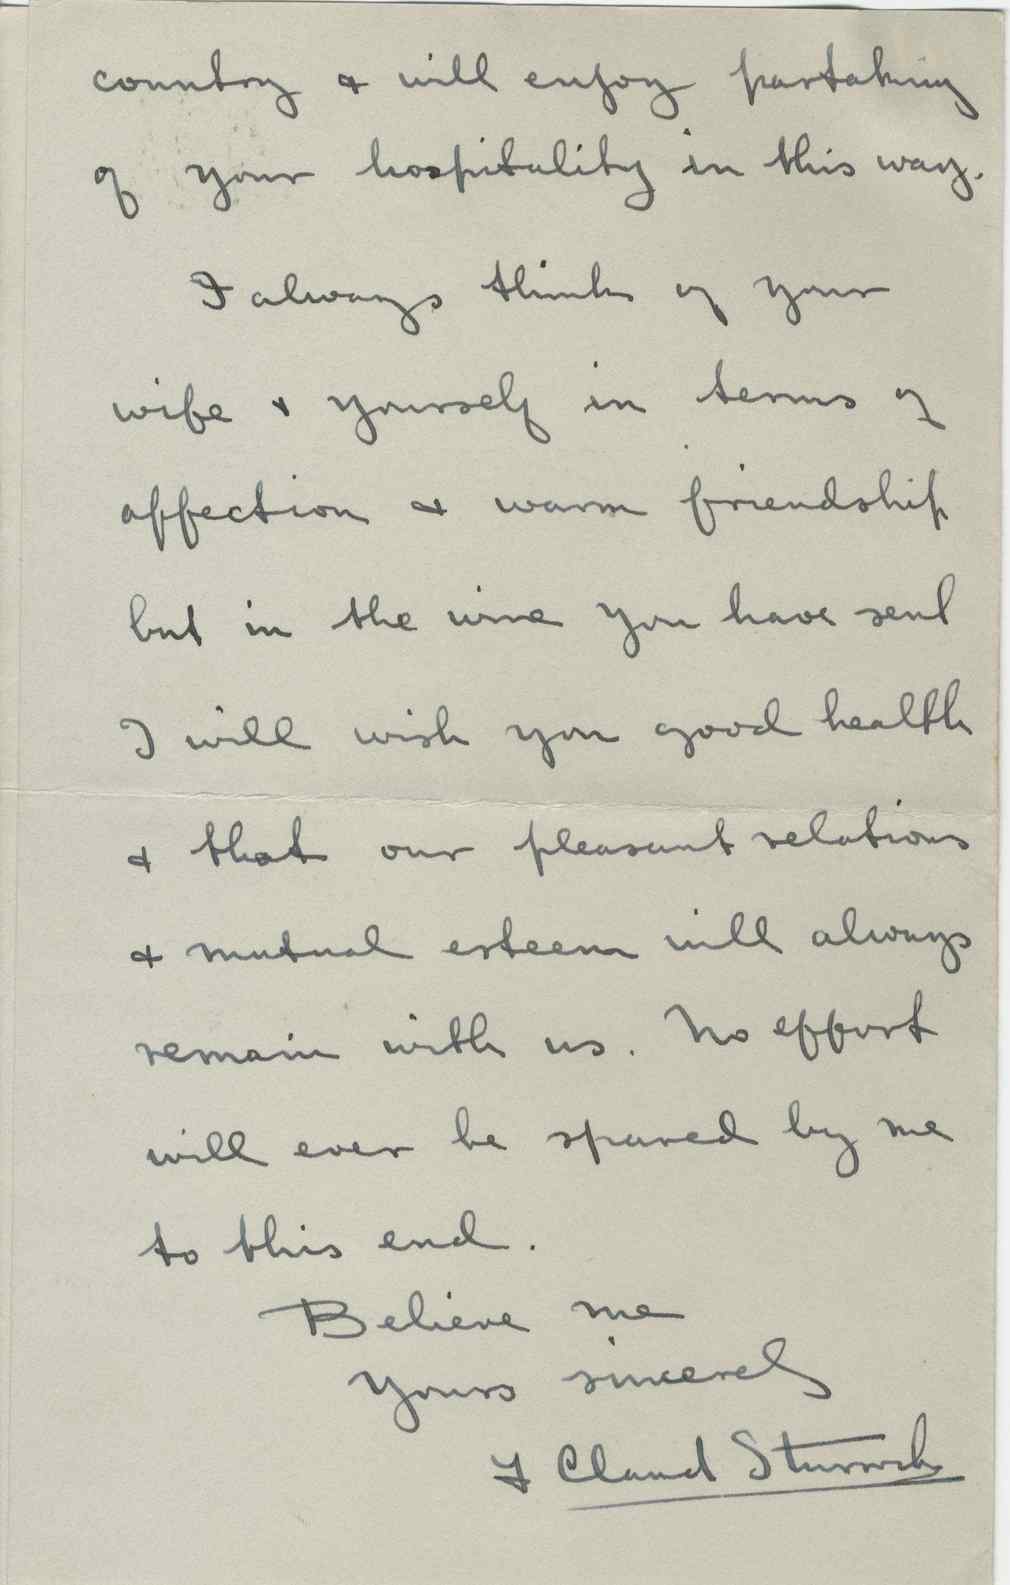 country & will enjoy partaking
of your hospitality in this way.
I always think of your
wife & yourself in terms of
affection & warm friendship
but in the wine you have sent
I will wish you good health
& that our pleasant relations
& mutual esteem will always
remain with us. No effort
will ever be spared by me
to this end.
Believe me
Yours sincerely
Claud